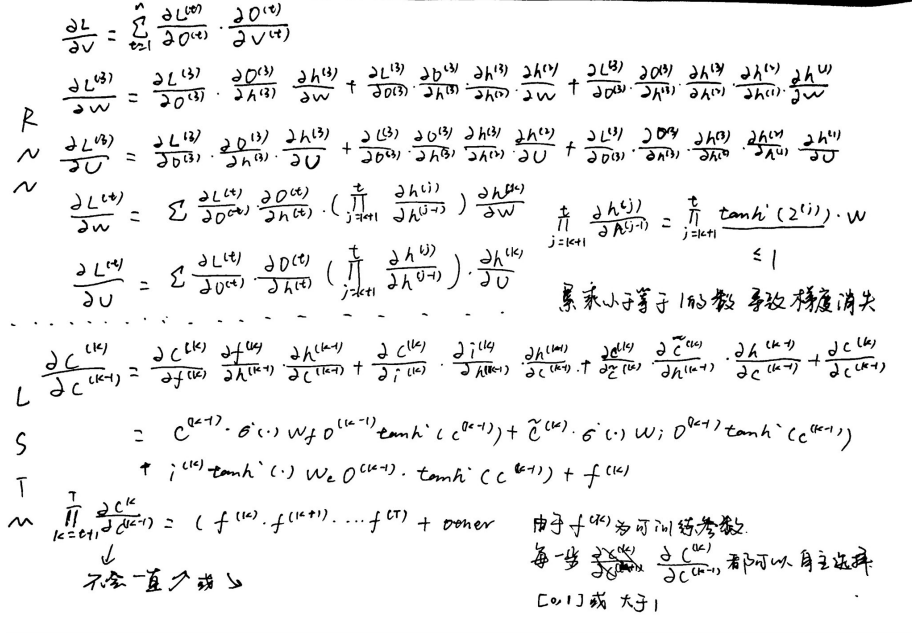 ∂L/∂V = Σ_{t=1}^{n} ∂L^(t)/∂O^(t) · ∂O^(t)/∂V^(t)
RNN
∂L^(3)/∂W = ∂L^(3)/∂O^(3) · ∂O^(3)/∂h^(3) ∂h^(3)/∂W + ∂L^(3)/∂O^(3) · ∂O^(3)/∂h^(3) · ∂h^(3)/∂h^(2) · ∂h^(2)/∂W + ∂L^(3)/∂O^(3) · ∂O^(3)/∂h^(3) · ∂h^(3)/∂h^(2) · ∂h^(2)/∂h^(1) · ∂h^(1)/∂W
∂L^(3)/∂U = ∂L^(3)/∂O^(3) · ∂O^(3)/∂h^(3) · ∂h^(3)/∂U + ∂L^(3)/∂O^(3) · ∂O^(3)/∂h^(3) ∂h^(3)/∂h^(2) · ∂h^(2)/∂U + ∂L^(3)/∂O^(3) · ∂O^(3)/∂h^(3) · ∂h^(3)/∂h^(2) · ∂h^(2)/∂h^(1) ∂h^(1)/∂U
∂L^(t)/∂W = Σ ∂L^(t)/∂O^(t) · ∂O^(t)/∂h^(t) · (∏_{j=k+1}^{t} ∂h^(j)/∂h^(j-1)) ∂h^(k)/∂W
∏_{j=k+1}^{t} ∂h^(j)/∂h^(j-1) = ∏_{j=k+1}^{t} tanh'(z^(j)) · W
≤ 1
∂L^(t)/∂U = Σ ∂L^(t)/∂O^(t) · ∂O^(t)/∂h^(t) (∏_{j=k+1}^{t} ∂h^(j)/∂h^(j-1)) · ∂h^(k)/∂U
累乘小于等于1的数 导致梯度消失
LSTM
∂C^(k)/∂C^(k-1) = ∂C^(k)/∂f^(k) ∂f^(k)/∂h^(k-1) · ∂h^(k-1)/∂C^(k-1) + ∂C^(k)/∂i^(k) · ∂i^(k)/∂h^(k-1) · ∂h^(k-1)/∂C^(k-1) + ∂C^(k)/∂C̃^(k) · ∂C̃^(k)/∂h^(k-1) · ∂h^(k-1)/∂C^(k-1) + ∂C^(k)/∂C^(k-1)
= C^(k-1) · σ'(·) W_f O^(k-1) tanh'(C^(k-1)) + C̃^(k) · σ'(·) W_i O^(k-1) tanh'(C^(k-1))
+ i^(k) tanh'(·) W_c O^(k-1) · tanh'(C^(k-1)) + f^(k)
∏_{k=t+1}^{T} ∂C^k/∂C^(k-1) = (f^(k) · f^(k+1) · … f^(T) + other
↓
不会一直↗或↘
由于f^(k)为可训练参数.
每一步 ∂C^(k)/∂C^(k-1) 都可以自主选择
[0,1]或大于1